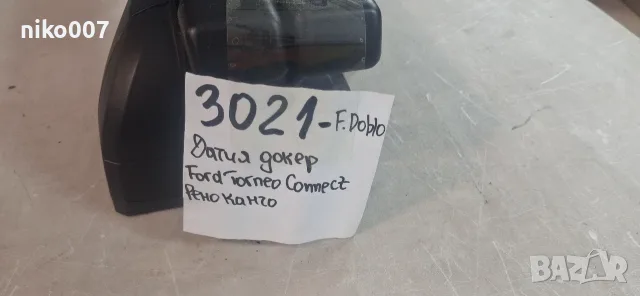 niko007
3021-F.Doblo
Дачия докер
Ford Torneo Connect
Рено Канго
BAZAR